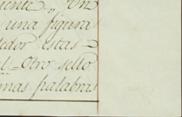 uente„ Un
una figura
dedor estas=
l. Otro sello
mas palabras